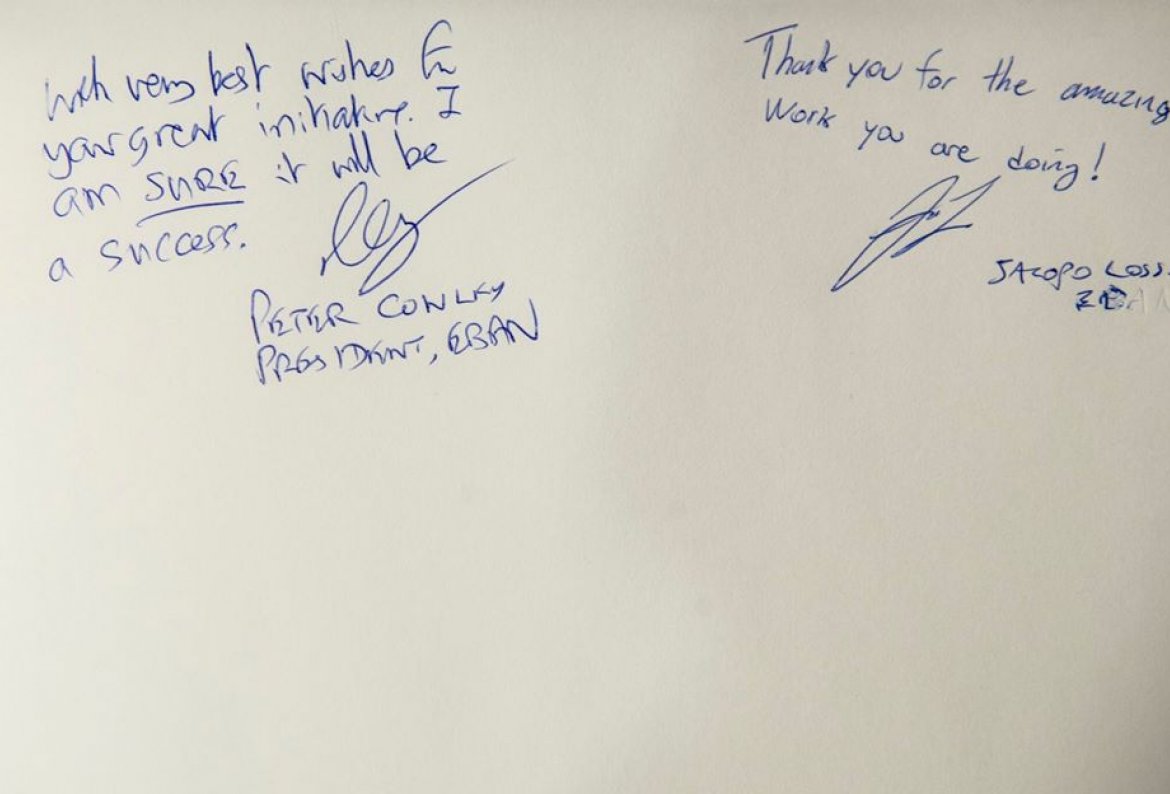 With very best wishes for
your great initiative. I
am SURE it will be
a success.
PETER COWLEY
PRESIDENT, EBAN
Thank you for the amazing
Work you are doing!
JACOPO LOSS